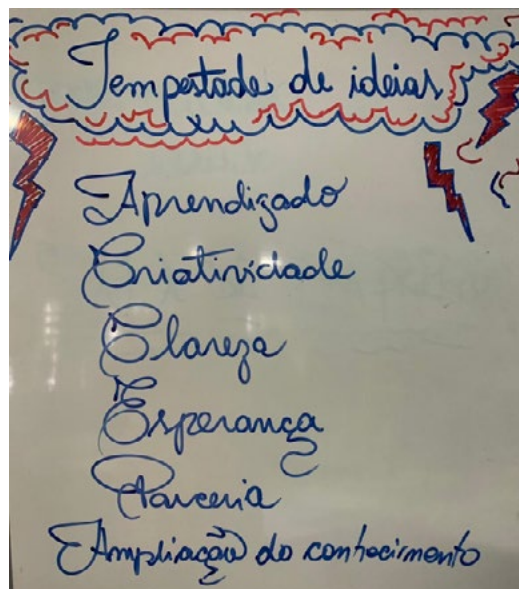 Tempestade de ideias
Aprendizado
Criatividade
Clareza
Esperança
Parceria
Ampliação do conhecimento